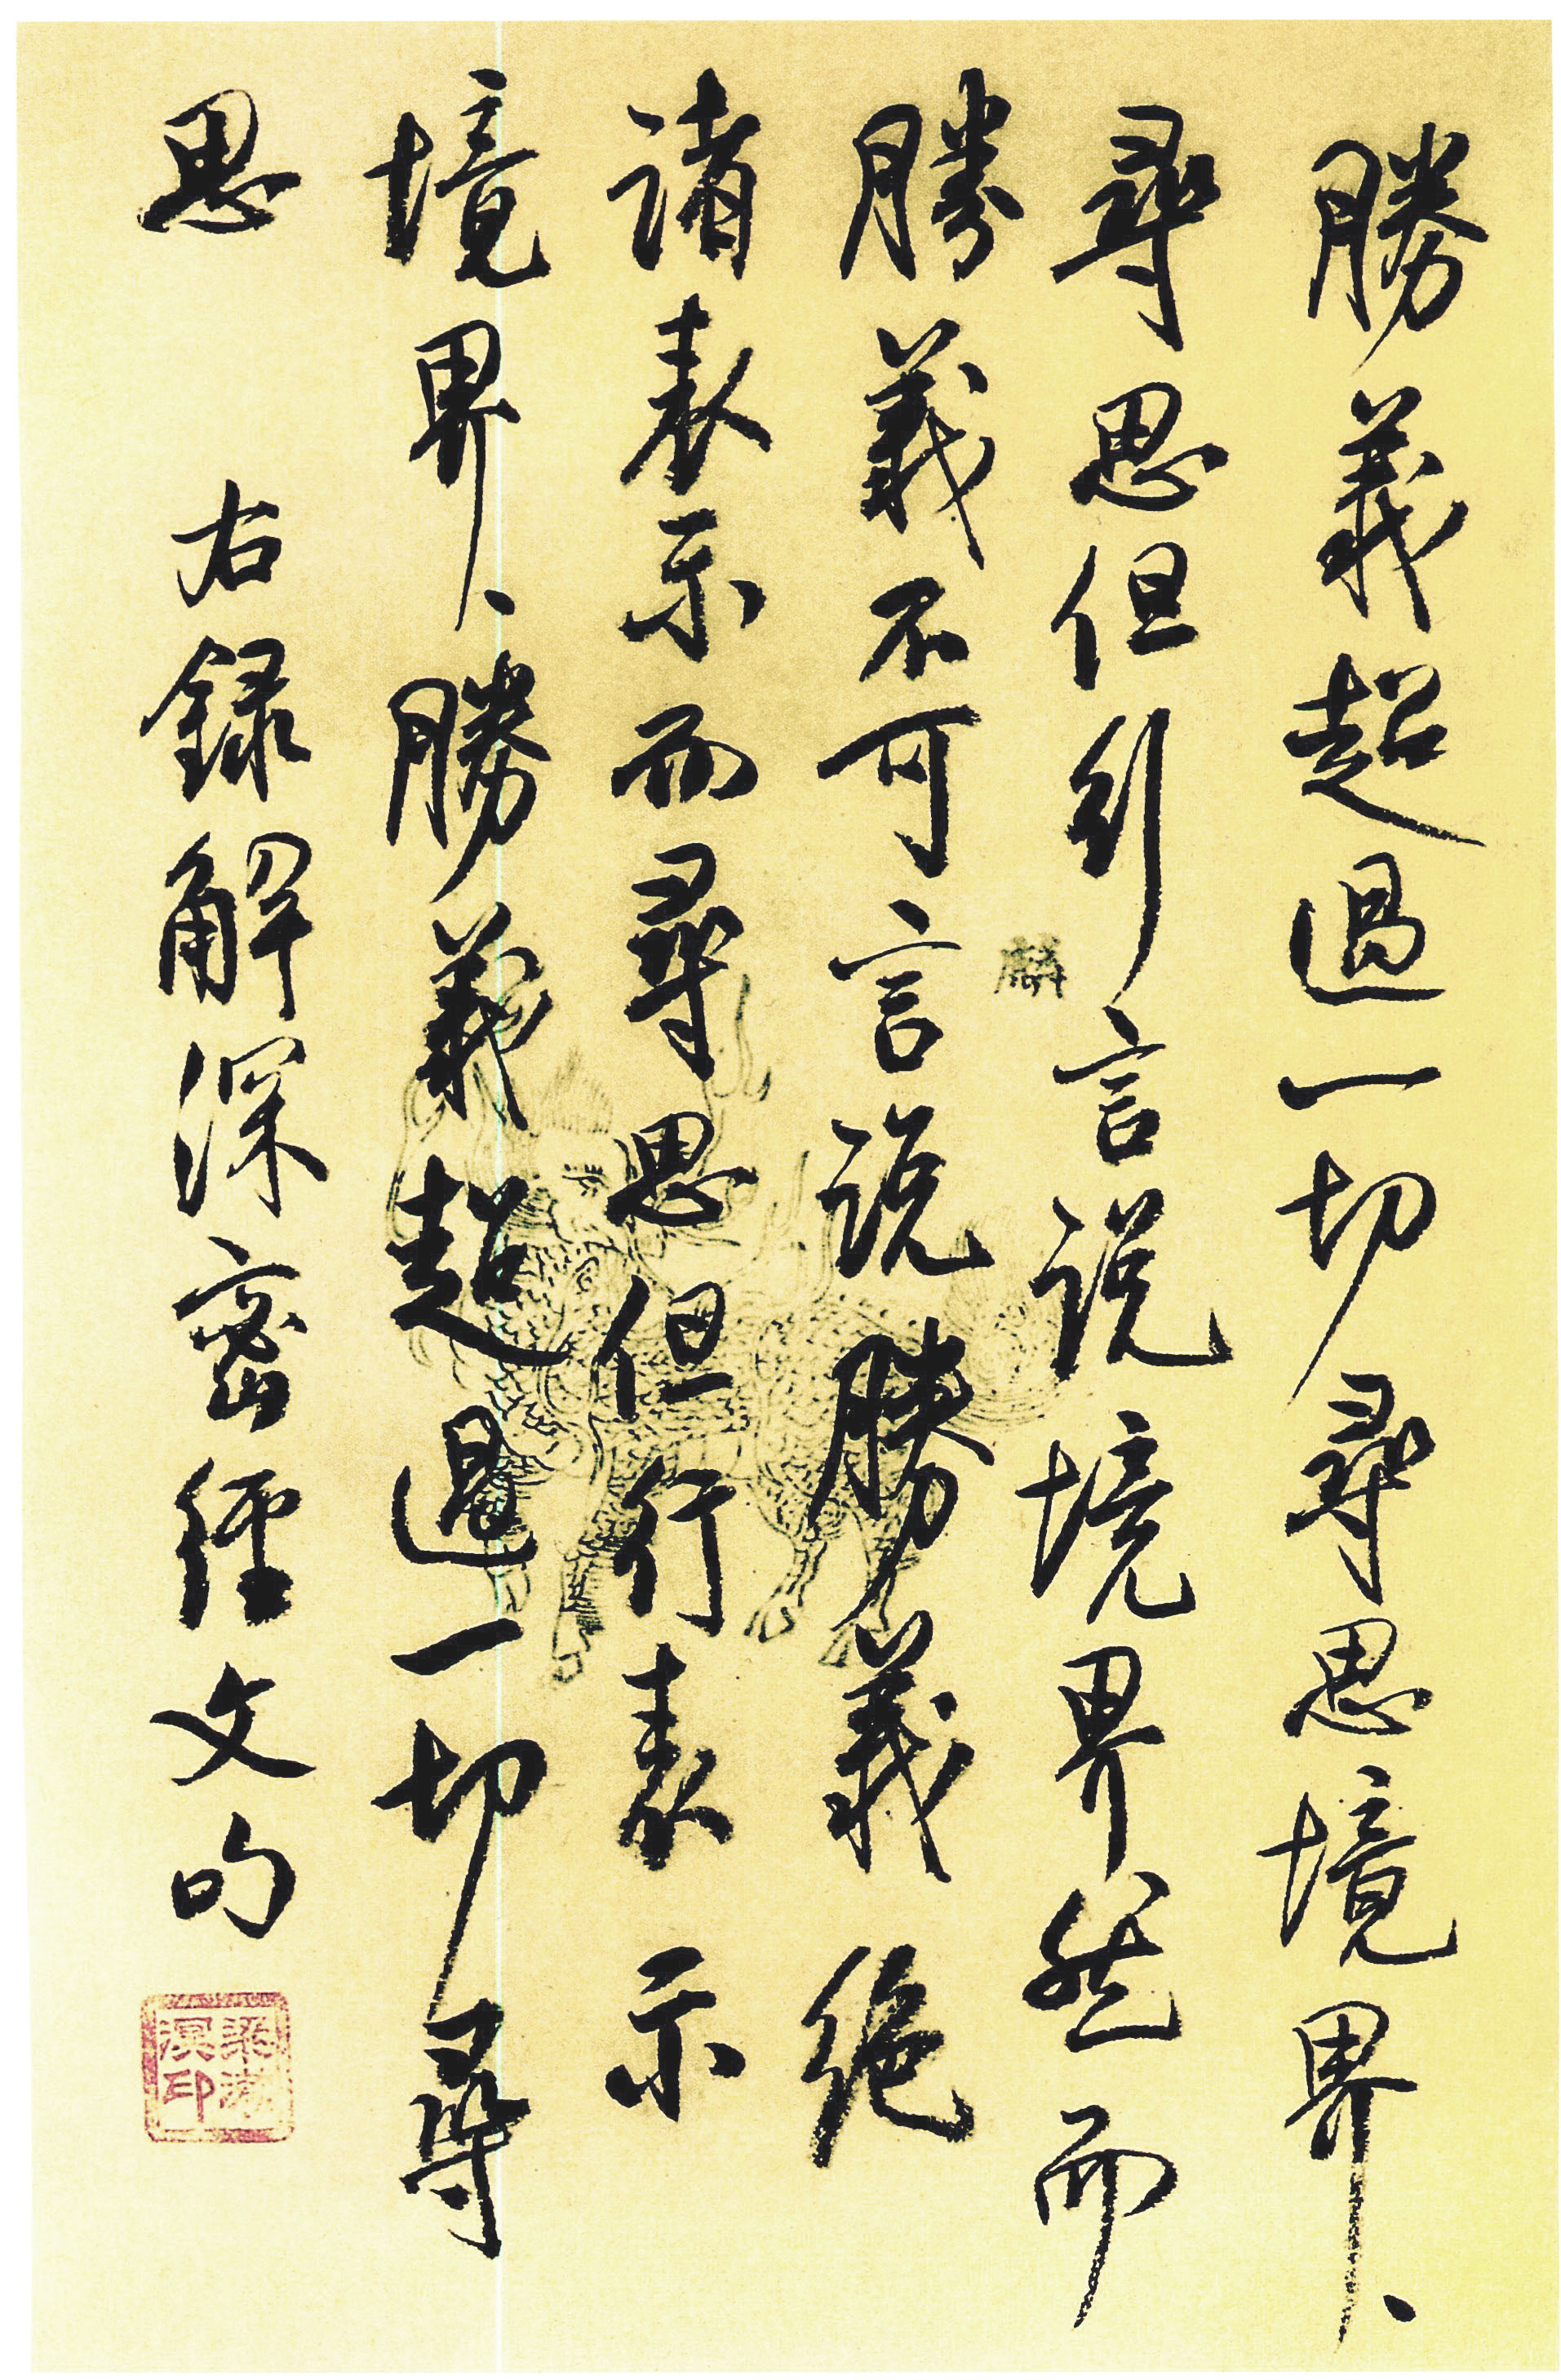 勝義超過一切尋思境界、
尋思但行言説境界然而
勝義不可言説勝義絶
諸表示而尋思但行表示
境界、勝義超過一切尋
思
右録解深密經文句
梁漱溟印
麟